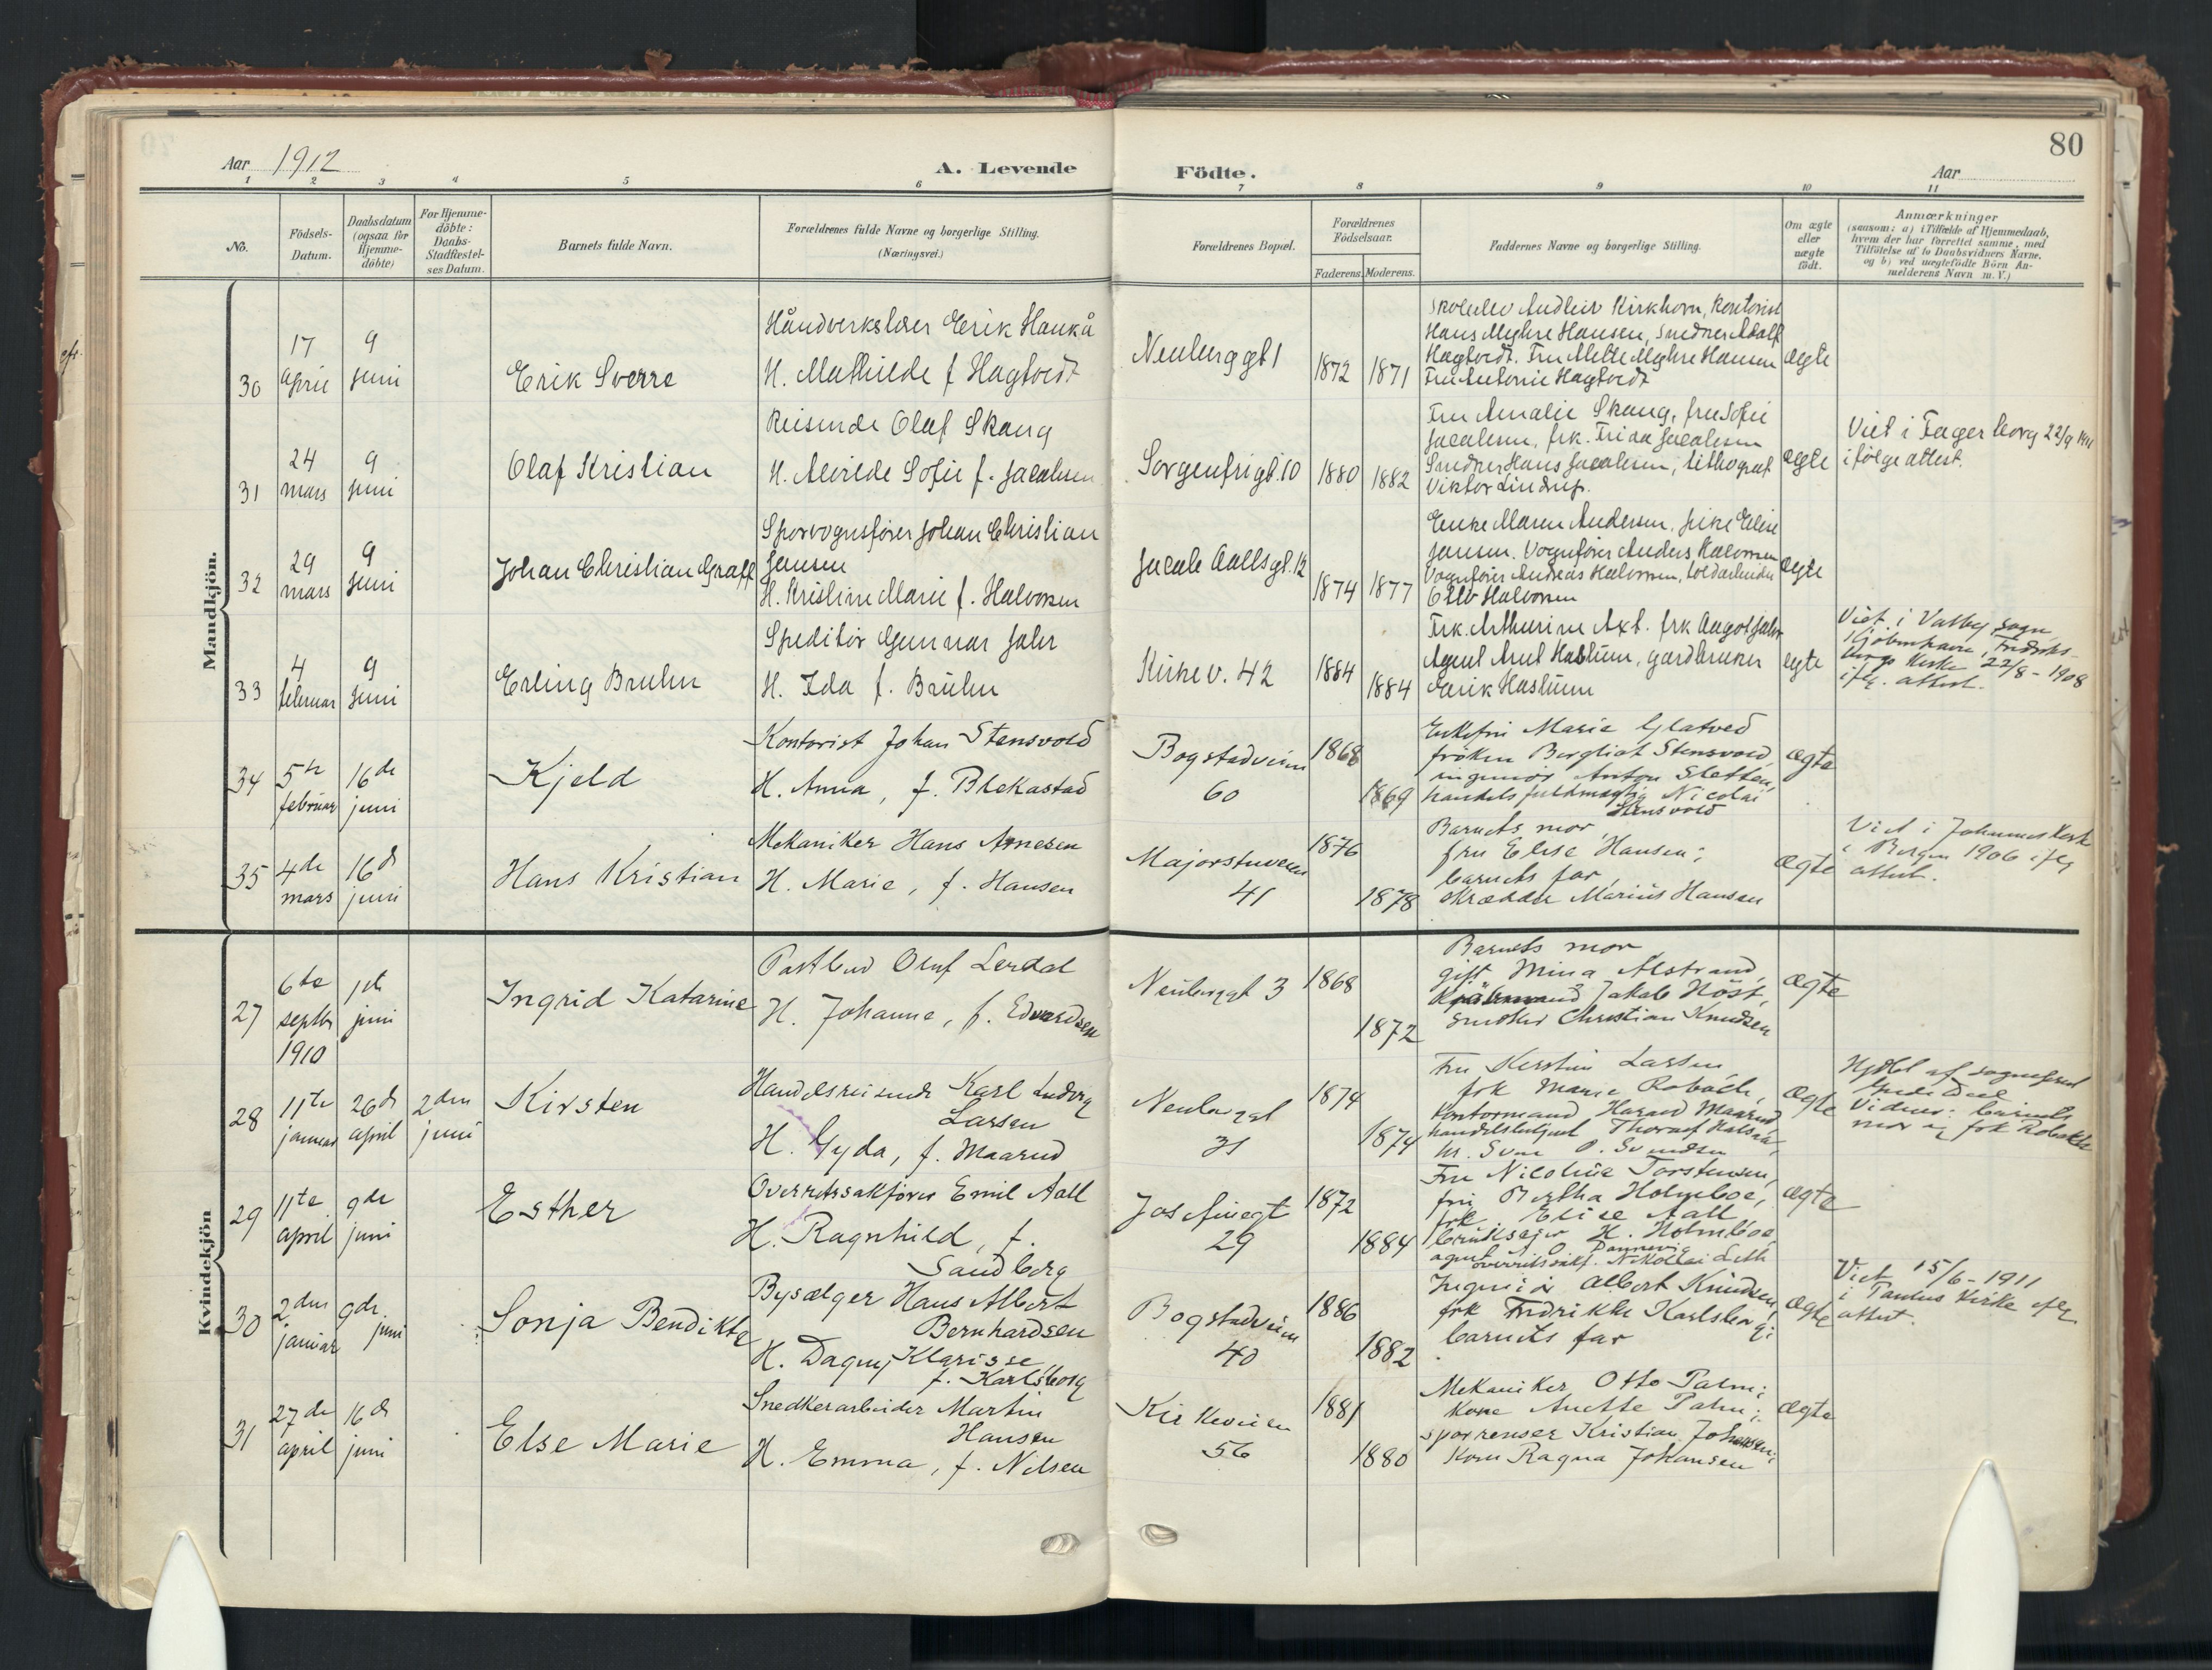 80
Aar 1912
A. Levende
Födte.
Aar
1 2 3 4 5 6 7 8 9 10 11
No.
Födsels-
Datum.
Daabsdatum
(ogsaa for
Hjemme-
döbte)
For Hjemme-
döbte:
Daabs-
Stadfæstel-
ses Datum.
Barnets fulde Navn.
Forældrenes fulde Navne og borgerlige Stilling.
(Næringsvei.)
Forældrenes Bopæl.
Forældrenes
Födselsaar.
Faderens.
Moderens.
Faddernes Navne og borgerlige Stilling.
Om ægte
eller
uægte
födt.
Anmærkninger
(saasom: a) i Tilfælde af Hjemmedaab,
hvem der har forrettet samme, med
Tilföielse af to Daabsvidners Navne,
og b) ved uægtefödte Börn An-
melderens Navn m. V.)
Mandkjön.
30
17
april
9
juni
Erik Sverre
Håndverkslærer Erik Haukå
H. Mathilde f Hagtvedt
Neuberggt 1
1872
1871
Kirkhorn, kontorist
Hans Myhre Hansen, snedker Adolf
Hagtvedt. Fru Mette Myhre Hansen
Fru Antonie Hagtvedt
ægte
31
24
mars
9
juni
Olaf Kristian
Reisende Olaf Skaug
H. Alvilde Sofie f. Jacobsen
Sorgenfrigt. 10
1880
1882
Fru Amalie Skaug, fru Sofie
Jacobsen, frk. Frida Jacobsen
Snedker Hans Jacobsen, lithograf
Viktor Lindrup.
ægte
Viet i Fagerborg 22/9 1911
ifølge attest.
32
29
mars
9
juni
Johan Christian Graff
Sporvognsfører Johan Christian
Jansen
H. Kristine Marie f. Halvorsen
Jacob Aallsgt. 12
1874
1877
Enke Maren Andersen, pike Eline
Jansen. Vognfører Anders Halvorsen
Vognfører Andreas Halvorsen,
Halvorsen
ægte
33
4
februar
9
juni
Erling Bruhn
Speditør Gunnar Jahr
H. Ida f. Bruhn
Kirkev. 42
1884
1884
Frk. Arthurine Axt. frk Aagot Jahr
Agent Haslum, gardbruker
Haslum
ægte
Viet i Valby sogn,
Kjøbenhavn, Fredriks-
bergs Kirke 22/8 - 1908
ifg. attest.
34
5te
februar
16de
juni
Kjeld
Kontorist Johan Stensvold
H. Anna, f. Blekastad
Bogstadveien
60
1868
1869
Enkefru Marie Glatved
frøken Bergliot Stensvold,
ingeniør Anton Sletten,
handelsfuldmægtig Nicolai
Stensvold
ægte
35
4de
mars
16de
juni
Hans Kristian
Mekaniker Hans Arnesen
H. Marie, f. Hansen
Majorstuveien
41
1876
1878
Barnets mor,
fru Elise Hansen;
barnets far,
skrædder Marius Hansen
ægte
Viet i Johannes Kirke
i Bergen 1906 ifg
attest.
Kvindekjön
27
6te
septbr
1910
1ste
juni
Ingrid Katarine
Postbud Oluf Lerdal
H. Johanne, f. Edvardsen
Neuberggt 3
1868
1872
Barnets mor
gift Mina Alstrand,
Jakob Höst,
snedker Christian Knudsen
ægte
28
11te
januar
26de
april
2den
juni
Kirsten
Handelsreisende Karl Ludvig
Larsen
H. Gyda, f. Maarud
Neuberggt
31
1874
1874
Fru Kerstin Larsen,
frk Marie Robach,
kontormand Harald Maarud
handelsbetjent Thoralf
hr. Sven O. Svendsen
ægte
Hjdbt af sogneprest
Vidner: barnets
mor og frk Robakk
29
11te
april
9de
juni
Esther
Overretssakfører Emil Aall
H. Ragnhild, f.
Sandberg
Josefinegt
29
1872
1884
Fru Nicoline Torstensen,
fru Bertha Holmboe,
frk Elise Aall
bruksejer H. Holmboe,
agent O. Dannevig
overretssakf. Nikolai Leth
ægte
30
2den
januar
9de
juni
Sonja Bendikte
Bysælger Hans Albert
Bernhardsen
H. Dagny Klarisse
f. Karlsborg
Bogstadveien
40
1886
1882
Ingeniør Albert Knudsen,
frk Fredrikke Karlsborg;
barnets far
ægte
Viet 15/6 - 1911
i Paulus Kirke ifg
attest.
31
27de
april
16de
juni
Else Marie
Snedkerarbeider Martin
Hansen
H. Emma, f. Nilsen
Kirkeveien
56
1881
1880
Mekaniker Otto Palm;
kone Anette Palm;
sporrenser Kristian Johansen;
kone Ragna Johansen
ægte